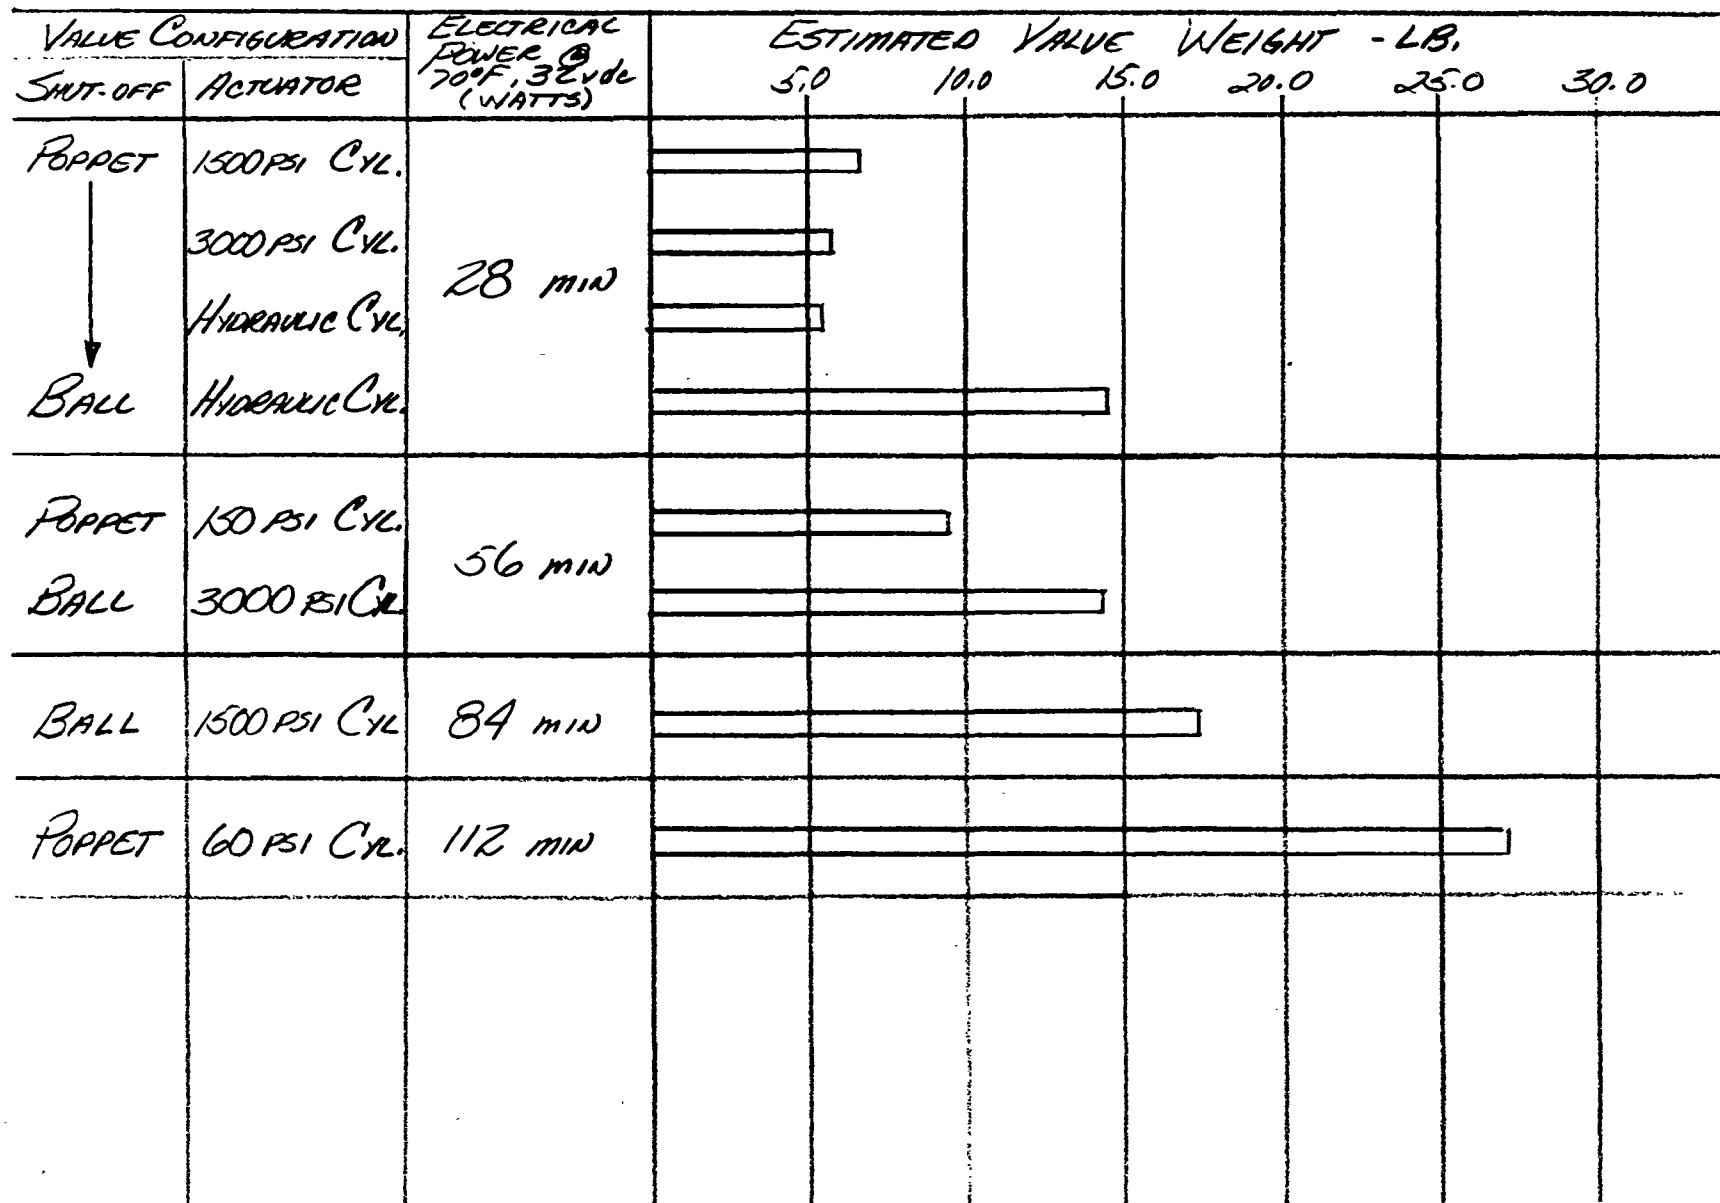 VALUE CONFIGURATION
SHUT-OFF ACTUATOR
ELECTRICAL
POWER @
70°F, 32vdc
(WATTS)
ESTIMATED VALUE WEIGHT - LB.
5.0 10.0 15.0 20.0 25.0 30.0
POPPET 1500 PSI CYL.
3000 PSI CYL.
28 MIN
HYDRAULIC CYL.
BALL HYDRAULIC CYL.
POPPET 150 PSI CYL.
56 MIN
BALL 3000 PSI CYL
BALL 1500 PSI CYL 84 MIN
POPPET 60 PSI CYL. 112 MIN